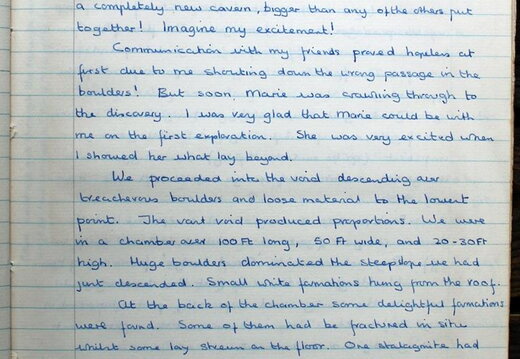 a completely new cavern, bigger than any of the others put
together! Imagine my excitement!
Communication with my friends proved hopeless at
first due to me shouting down the wrong passage in the
boulders! But soon, Marie was crawling through to
the discovery. I was very glad that Marie could be with
me on the first exploration. She was very excited when
I showed her what lay beyond.
We proceeded into the void descending over
treacherous boulders and loose material to the lowest
point. The vast void produced proportions. We were
in a chamber over 100 Ft long, 50 Ft wide, and 20-30 Ft
high. Huge boulders dominated the steep slope we had
just descended. Small white formations hung from the roof.
At the back of the chamber some delightful formations
were found. Some of them had be fractured in situ
whilst some lay strewn on the floor. One stalagmite had